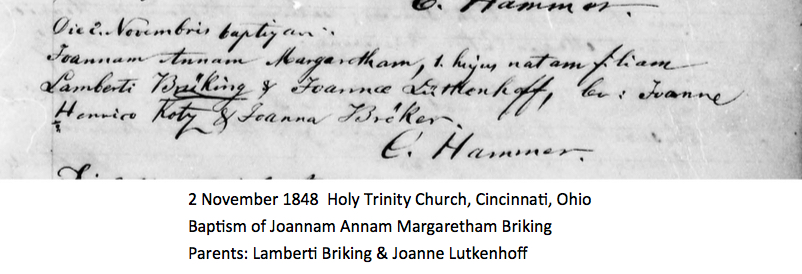 C. Hammer.
Die 2. Novembris baptizav:
Joannam Annam Margaretham, 1. hujus natam filiam
Lamberti Brüking & Joannae Lütkenhoff, lev: Joanne
Henrico Koty & Joanna Bröker.
C. Hammer.
2 November 1848 Holy Trinity Church, Cincinnati, Ohio
Baptism of Joannam Annam Margaretham Briking
Parents: Lamberti Briking & Joanne Lutkenhoff